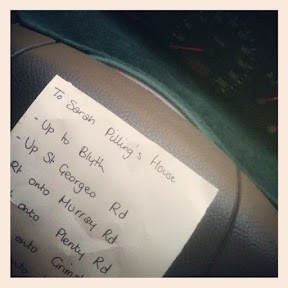 To Sarah Pilling's House
- Up to Blyth
- Up St Georges Rd
Rt onto Murray Rd
onto Plenty Rd
onto